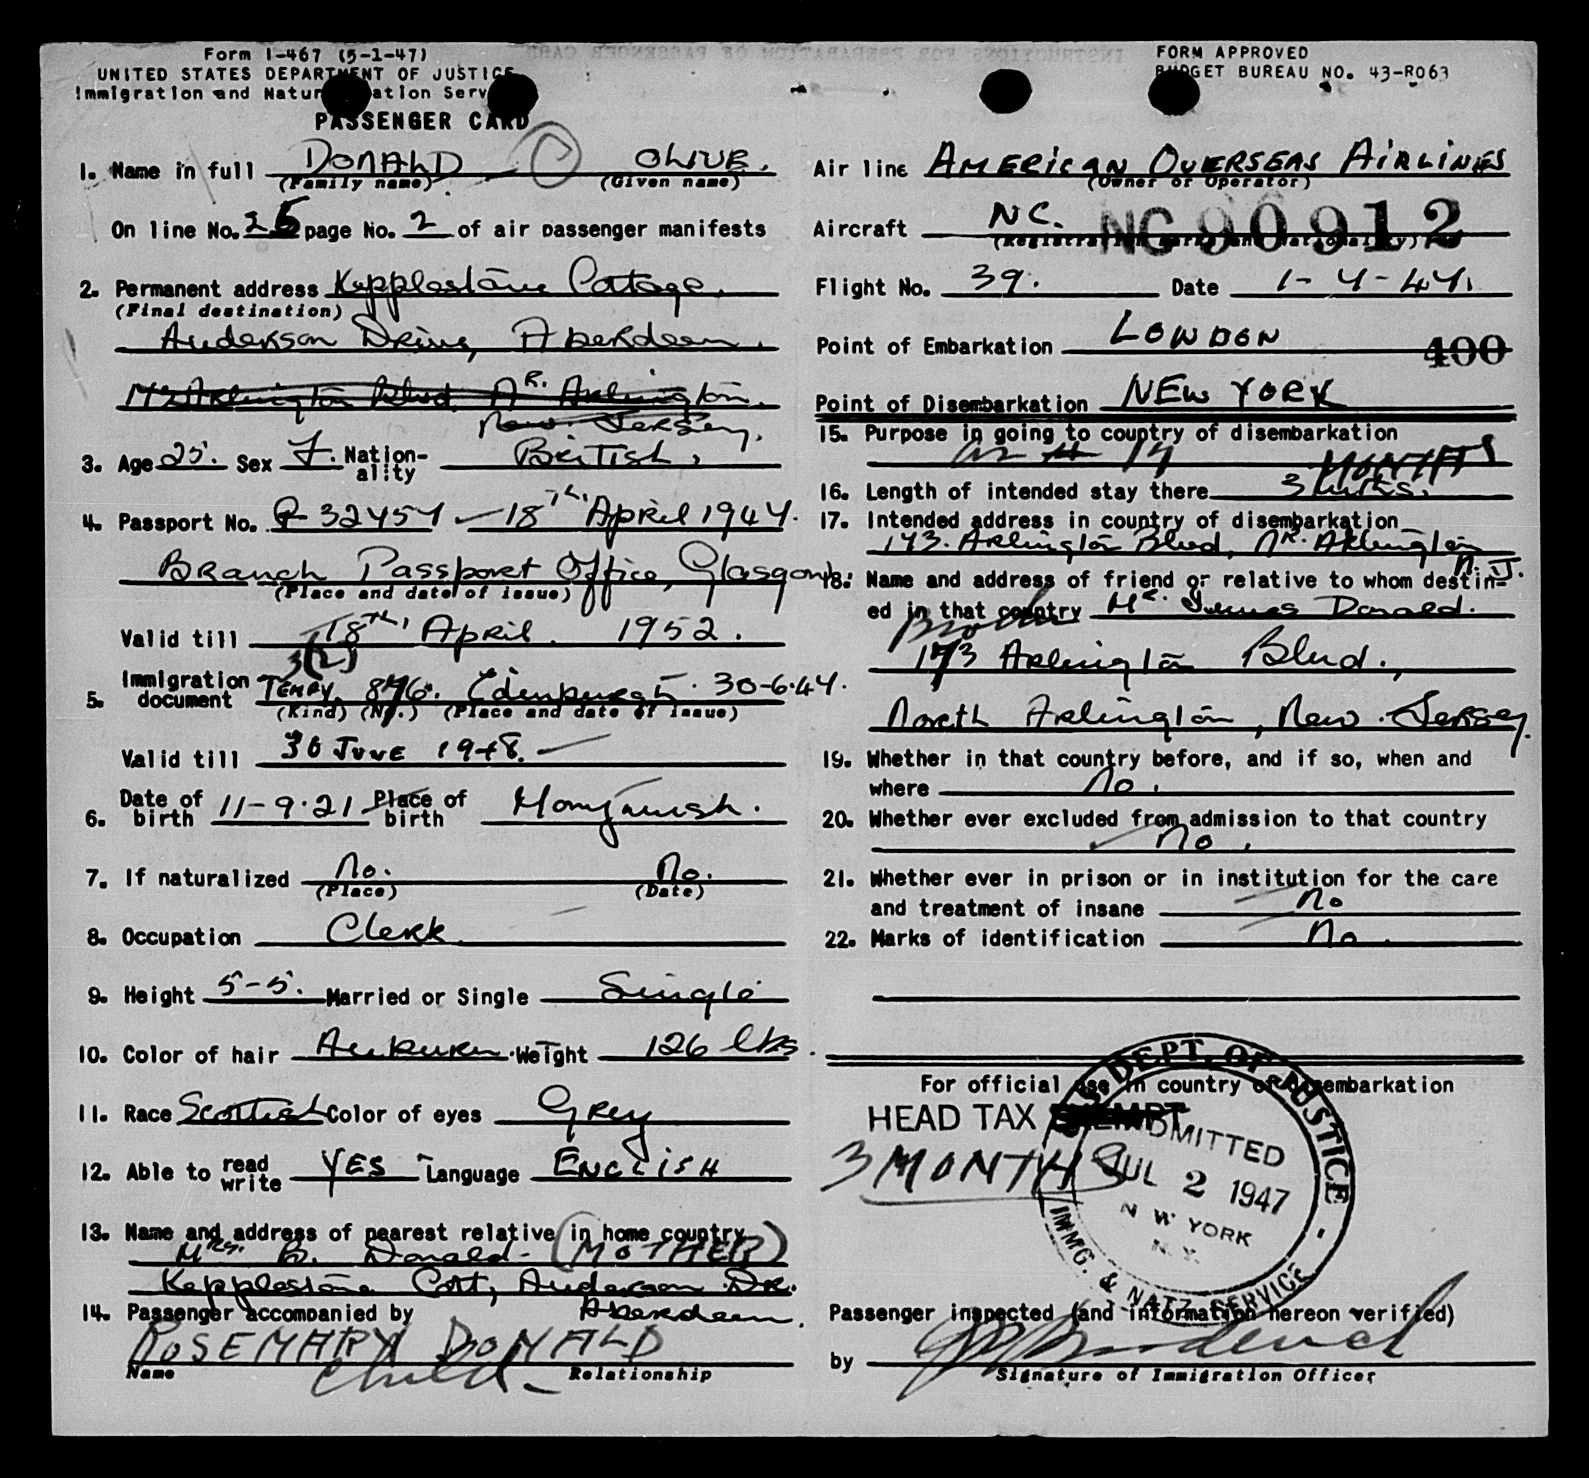 Form I-467 (5-1-47)
UNITED STATES DEPARTMENT OF JUSTICE
Immigration and Naturalization Service
PASSENGER CARD
1. Name in full DONALD OLIVE.
(Family name) (Given name)
On line No. 26 page No. 2 of air passenger manifests
2. Permanent address Kepplestone Cottage,
(Final destination)
Anderson Drive, Aberdeen.
173 Arlington Blvd. Nr. Arlington.
New Jersey.
3. Age 25. Sex F. Nationality British.
4. Passport No. 18th April 1947.
Branch Passport Office, Glasgow.
(Place and date of issue)
Valid till 18th, April. 1952.
3(2)
5. Immigration document Tempy. 876. Edinburgh. 30-6-47.
(Kind) (No.) (Place and date of issue)
Valid till 30 JUNE 1948.
6. Date of birth 11-9-21 Place of birth Monymusk.
7. If naturalized No. No.
(Place) (Date)
8. Occupation Clerk
9. Height 5-5. Married or Single Single
10. Color of hair Auburn. Weight 126 lbs.
11. Race Scottish Color of eyes Grey
12. Able to read write YES Language ENGLISH
13. Name and address of nearest relative in home country
Mrs. B. Donald - (MOTHER)
Kepplestone Cott, Anderson Dr.
14. Passenger accompanied by Aberdeen.
ROSEMARY DONALD
Name child Relationship
INSTRUCTIONS FOR PREPARATION OF PASSENGER CARD
FORM APPROVED
BUDGET BUREAU NO. 43-R063
Air line AMERICAN OVERSEAS AIRLINES
(Owner or Operator)
Aircraft NC. NC 90912
(Registration marks and nationality)
Flight No. 39. Date 1-7-47.
Point of Embarkation LONDON 400
Point of Disembarkation NEW YORK
15. Purpose in going to country of disembarkation
MONTHS
16. Length of intended stay there 3
17. Intended address in country of disembarkation
173. Arlington Blvd, Nr. Arlington
N.J.
18. Name and address of friend or relative to whom destined in that country Mr. James Donald.
Brother
173 Arlington Blvd.,
North Arlington, New Jersey.
19. Whether in that country before, and if so, when and
where No.
20. Whether ever excluded from admission to that country
No.
21. Whether ever in prison or in institution for the care
and treatment of insane No
22. Marks of identification No.
For official use in country of disembarkation
HEAD TAX EXEMPT
3 MONTHS
U.S. DEPT. OF JUSTICE - IMMG. & NATZ. SERVICE
ADMITTED
JUL 2 1947
NEW YORK
N.Y.
Passenger inspected (and information hereon verified)
by
Signature of Immigration Officer